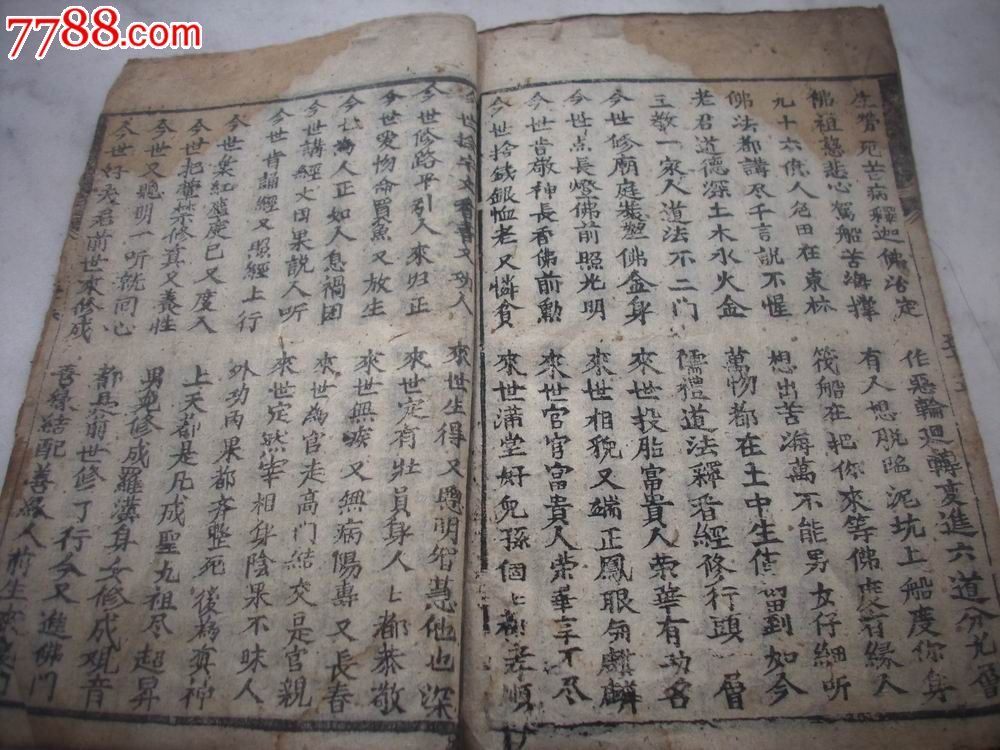 7788.com
生管死苦病釋迦佛治定
作惡輪迴轉变進六道分九層
佛祖慈悲心駕船苦海撑
有人想脱臨泥坑上船度你身
九十六億人危田在東林
筏船在把你來等佛來有緣人
佛法都講及千言說不惺
想出苦海萬不能男女仔細听
老君道德深土木水火金
萬物都在土中生值留到如今
三敬一家人道法不二門
儒禮道法釋看經修行頭一層
今世修廟庭裝塑佛金身
來世投胎富貴人榮華有功名
今世点長燈佛前照光明
來世相貌又端正鳳眼匆麒麟
今世皆敬神長香佛前勳
來世官官富貴人榮華享不尽
今世捨銭銀恤老又憐貧
來世满堂好兒孫個上都孝順
世捨 文 書又功人
來世生得又愚明智慧他也深
今世修路平引人來归正
來世定有壯員身人上都恭敬
今世愛物命買魚又放生
來世無 又無病陽壽又長春
今世為人正如人息禍团
來世為官走高門結交是官親
今世講經文因果說人听
來世定然宰相身陰果不昧人
今世肯誦經又照經上行
外功内果都齐整死後為真神
今世棄紅 度己又度人
上天都是凡成聖九祖尽超昇
今世把 禁修真又養性
男兒修成羅漢身女修成观音
今世又聰明一听就回心
都是前世修了行今又進佛門
今世好夫君前世來修成
善緣結配善 人前生